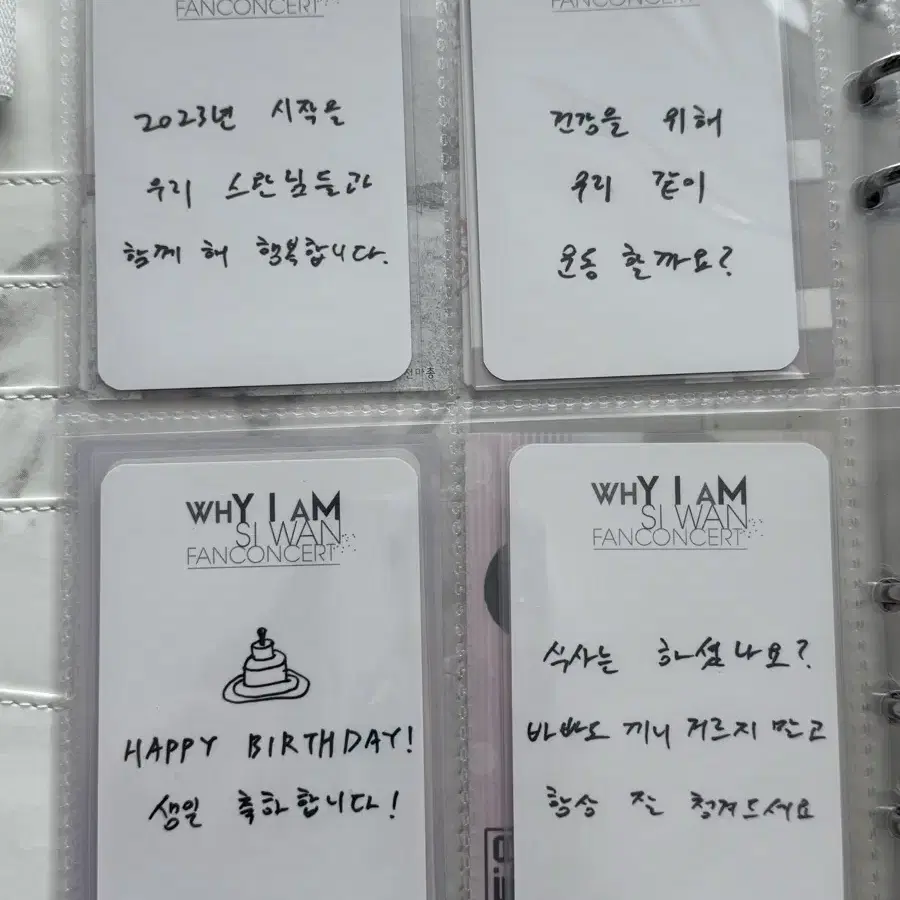 FANCONCERT
2023년 시작을
우리 스완님들과
함께 해 행복합니다.
FANCONCERT
건강을 위해
우리 같이
운동 할까요?
WHY I AM
SI WAN
FANCONCERT
HAPPY BIRTHDAY!
생일 축하합니다!
WHY I AM
SI WAN
FANCONCERT
식사는 하셨나요?
바빠도 끼니 거르지 말고
항상 잘 챙겨드세요